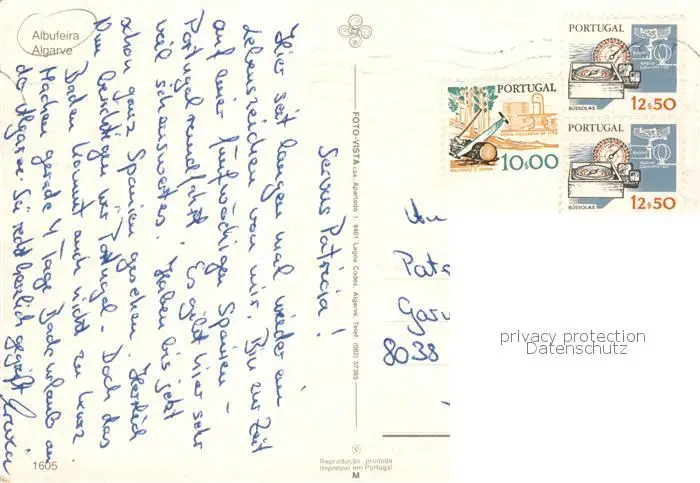 Albufeira
Algarve
Servus Patricia!
Hier seit langem mal wieder ein
Lebenszeichen von mir. Bin zur Zeit
auf einer fünfwöchigen Spanien-
Portugalrundfahrt. Es gibt hier sehr
viel sehenswertes. Haben bis jetzt
schon ganz Spanien gesehen. Herrlich
Nun besichtigen wir Portugal. Doch das
Baden kommt auch nicht zu kurz
Machen gerade 4 Tage Badeurlaub an
der Algarve. Sei recht herzlich gegrüßt
1605
FOTO-VISTA Lda. Apartado 1, 8401 Lagoa Codex, Algarve, Telef. (082) 57385
©
Reprodução proibida
Impresso em Portugal
M
PORTUGAL
10$00
PORTUGAL
RADAR
BÚSSOLAS
12$50
PORTUGAL
RADAR
BÚSSOLAS
12$50
An
Pat
8038
privacy protection
Datenschutz